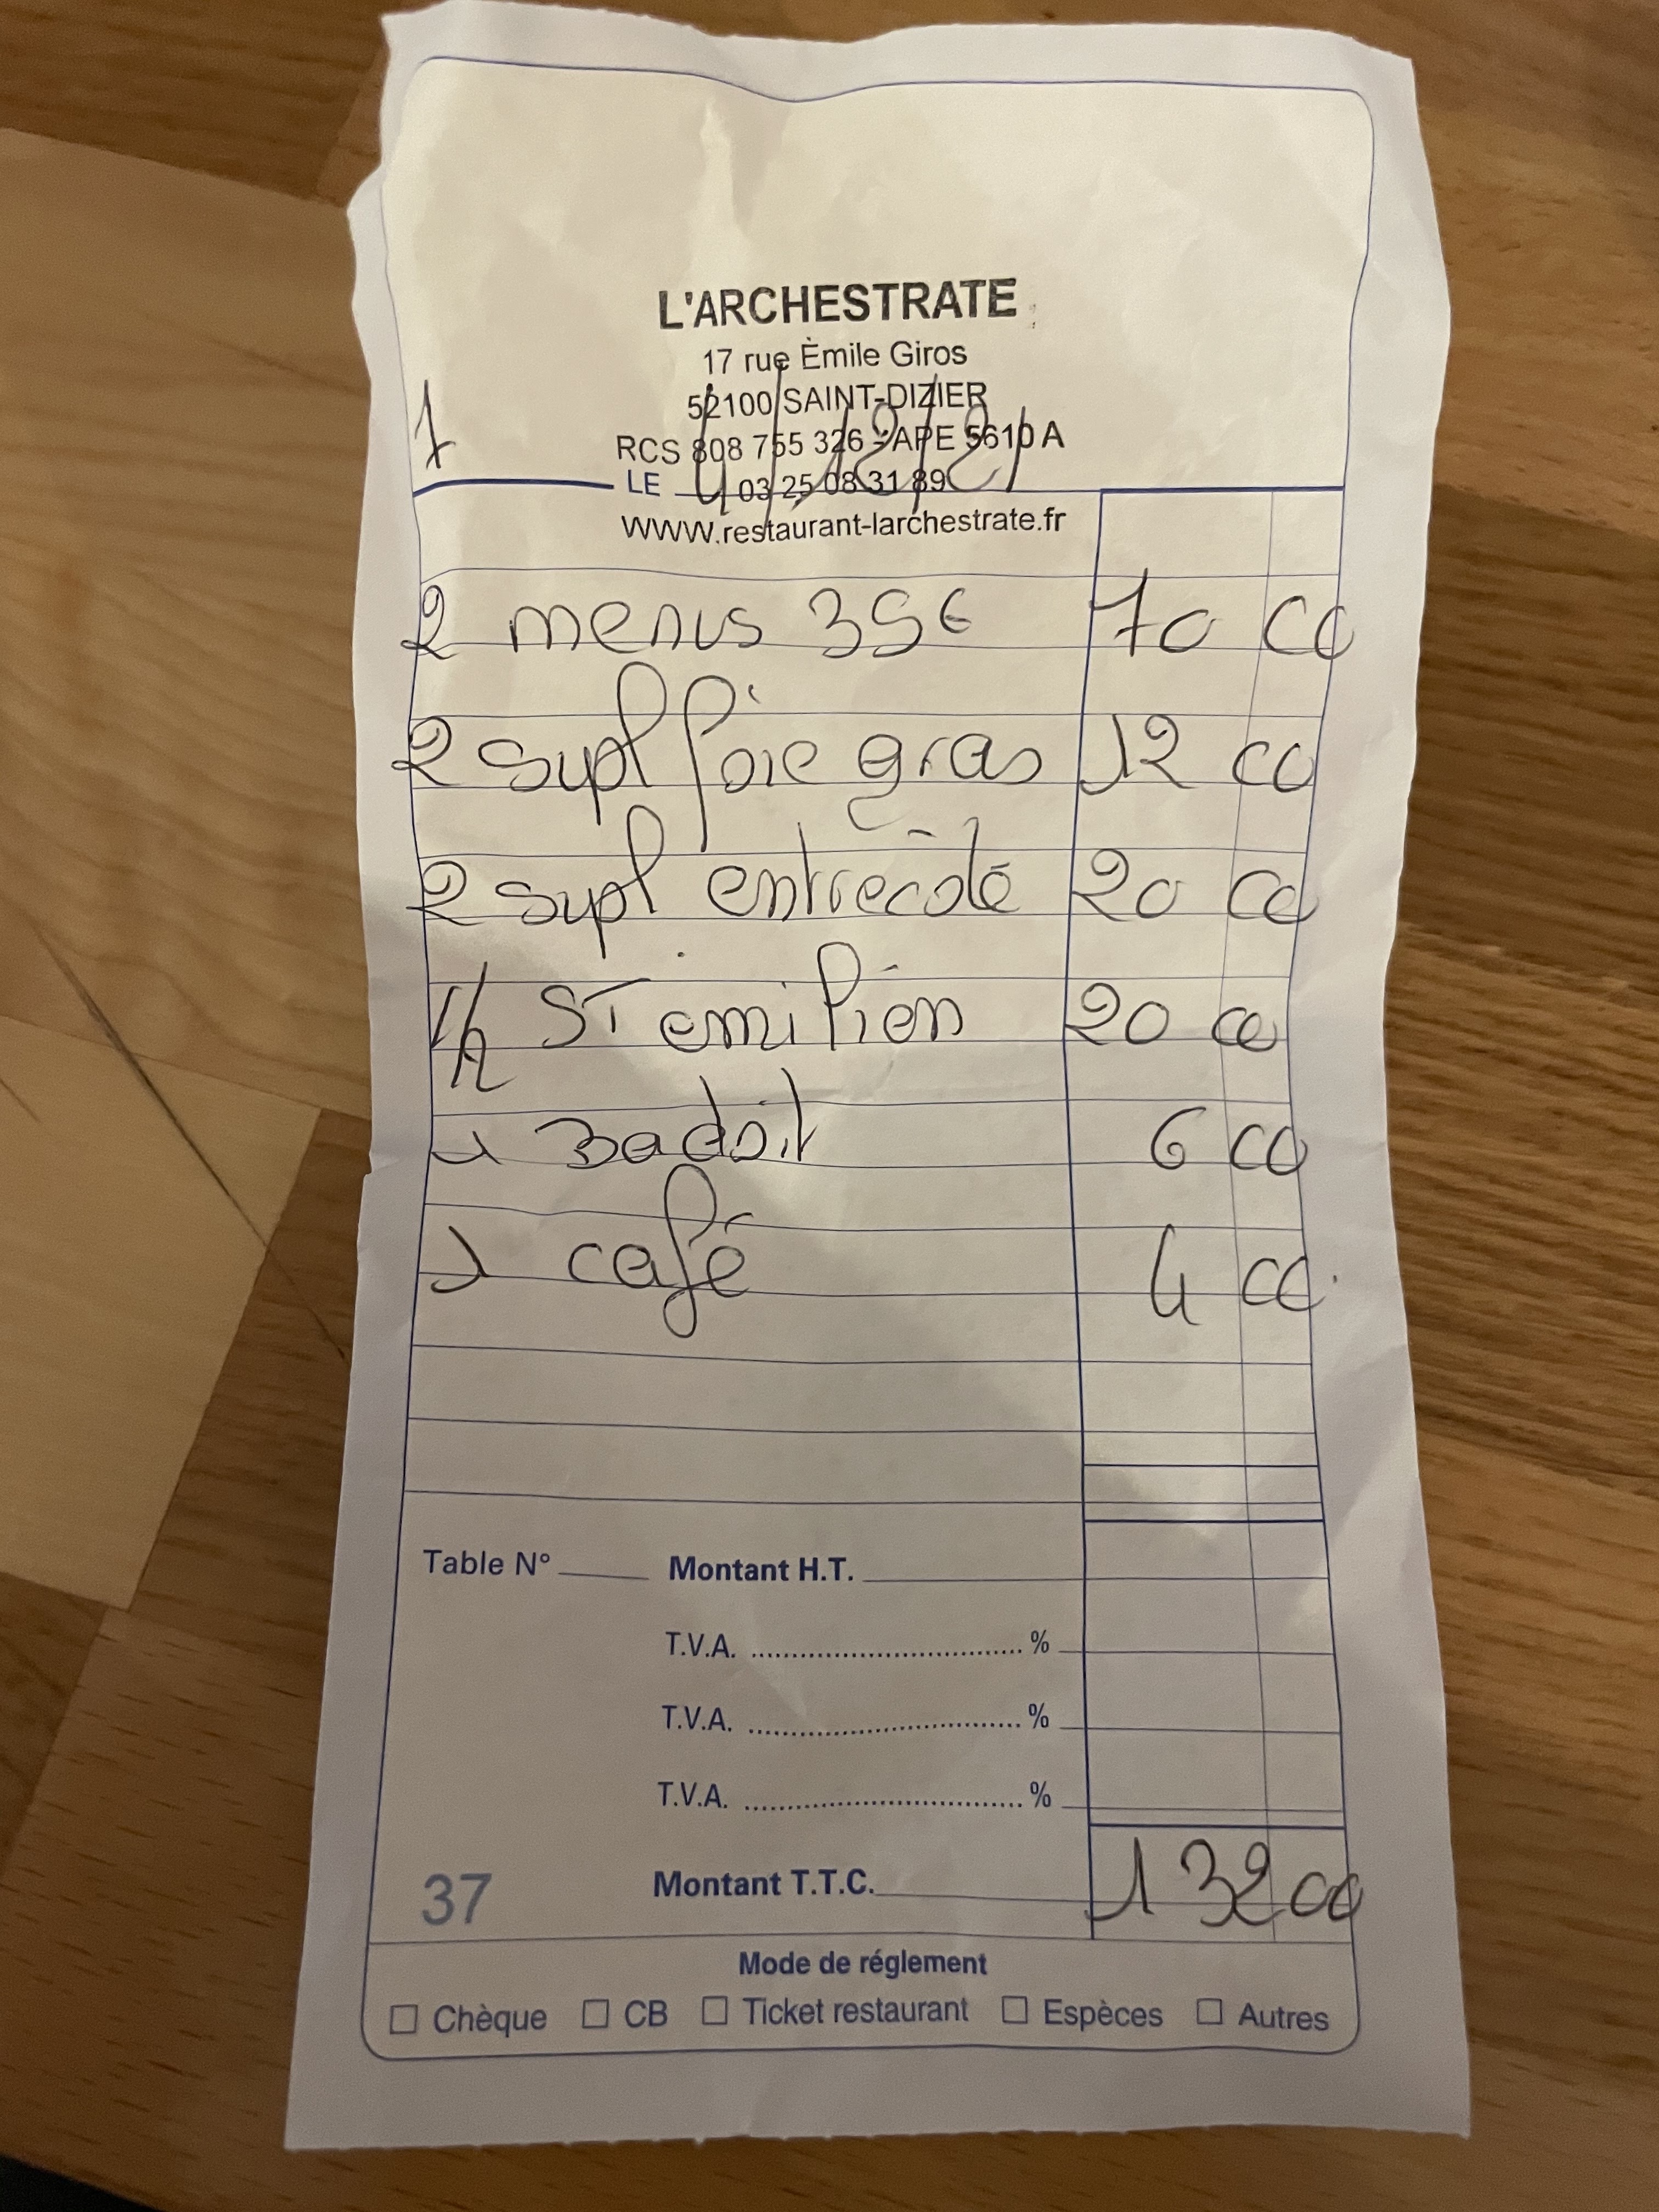 L'ARCHESTRATE
17 rue Èmile Giros
52100 SAINT-DIZIER
RCS 808 755 326 - APE 5610 A
1
LE 4/12/21
03 25 08 31 89
WWW.restaurant-larchestrate.fr
2 menus 35€ 70 00
2 supl foie gras 12 00
2 supl entrecôte 20 00
1/2 ST emilien 20 00
1 Badoit 6 00
1 café 4 00
Table N° Montant H.T.
T.V.A. %
T.V.A. %
T.V.A. %
37 Montant T.T.C. 132 00
Mode de réglement
Chèque CB Ticket restaurant Espèces Autres